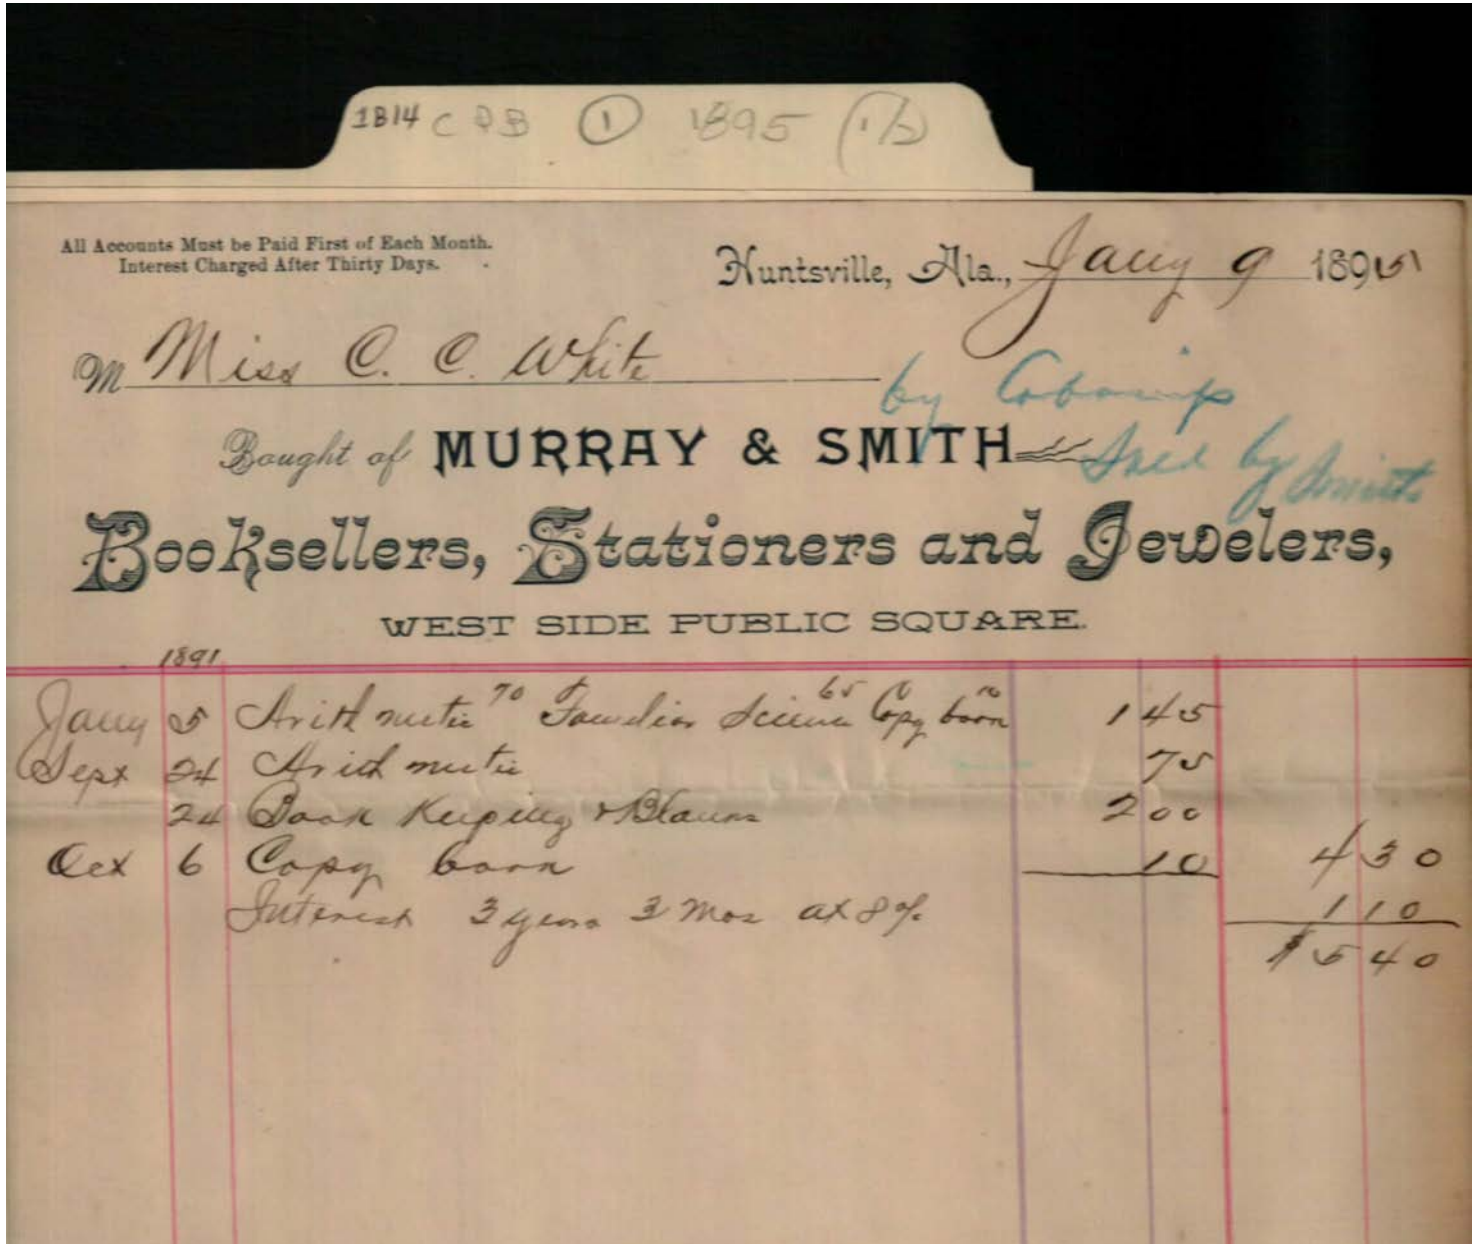 1814 C D B ① 1895 (1/2)
All Accounts Must be Paid First of Each Month.
Interest Charged After Thirty Days.
Huntsville, Ala., Jany 9 1895
M Miss C. C. White
by
Bought of MURRAY & SMITH
by Smith
Booksellers, Stationers and Jewelers,
WEST SIDE PUBLIC SQUARE.
1891
Jany 5 Arithmetic 70 Familiar Science 65 Copy book 10 1 45
Sept 24 Arithmetic 75
24 Book Keeping & Blanks 2 00
Oct 6 Copy book 10 4 30
Interest 3 years 3 Mos at 8% 1 10
$ 5 40